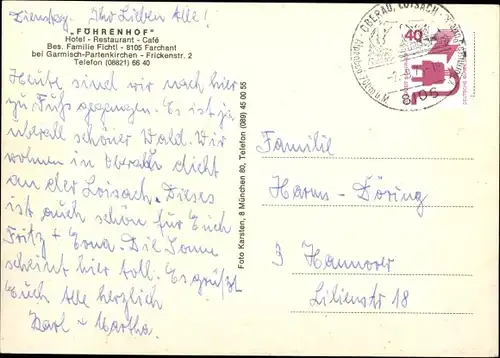 Dienstag. Ihr Lieben Alle!
"FÖHRENHOF"
Hotel - Restaurant - Café
Bes. Familie Füchtl - 8105 Farchant
bei Garmisch-Partenkirchen - Frickenstr. 2
Telefon (08821) 66 40
Heute sind wir nach hier
zu Fuß gegangen. Es ist ja
überall schöner Wald. Wir
wohnen in Oberau dicht
an der Loisach. Dieses
ist auch schön für Euch
Fritz + Erna. Die Sonne
scheint hier toll. Es grüßt
Euch Alle herzlich
Karl + Martha.
Foto Karsten, 8 München 80, Telefon (089) 45 00 55
OBERAU, LOISACH
8105
40
DEUTSCHE BUNDESPOST
Familie
Harms-Döring
3 Hannover
Lilienstr 18